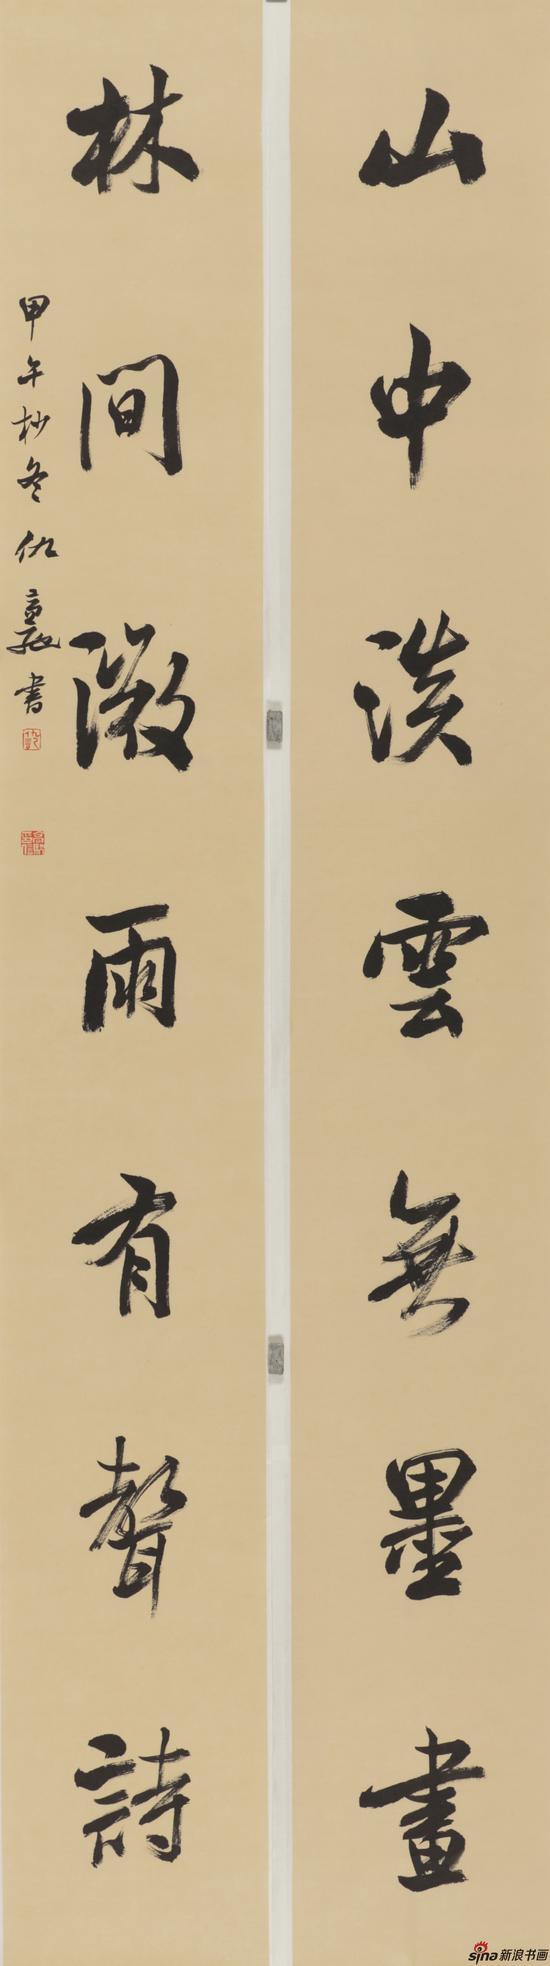 山中淡雲無墨畫
林間微雨有聲詩
甲午杪冬仇高馳書
sina新浪书画